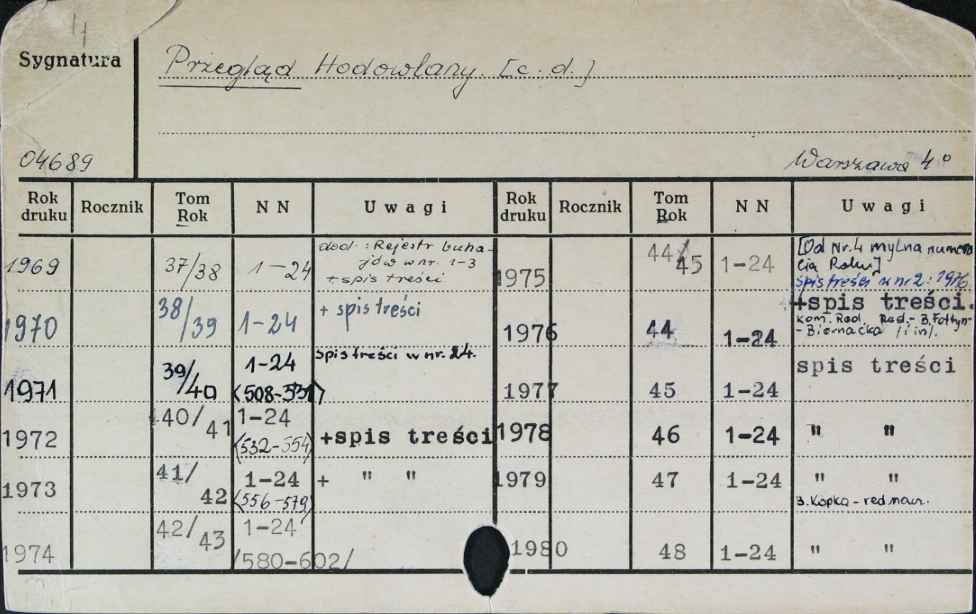 Sygnatura
Przegląd Hodowlany. [c.d.]
04689
Warszawa 4°
Rok druku Rocznik Tom Rok NN Uwagi Rok druku Rocznik Tom Rok NN Uwagi
1969 37/38 1-24 dod.: Rejestr buha-
jów w nr. 1-3
+ spis treści
1970 38/39 1-24 + spis treści
1971 39/40 1-24 spis treści w nr. 24.
(508-531)
1972 40/41 1-24 +spis treści
(532-554)
1973 41/42 1-24 + " "
(556-579)
1974 42/43 1-24
/580-602/
1975 44/45 1-24 [Od Nr. 4 mylna numera
cja Roku]
spis treści w nr 2: 1976
1976 44 1-24 +spis treści
Kom. Red. Red.- B. Fołtyn-
-Biernacka /i in/.
1977 45 1-24 spis treści
1978 46 1-24 " "
1979 47 1-24 " "
3. Kopka - red. nacz.
1980 48 1-24 " "